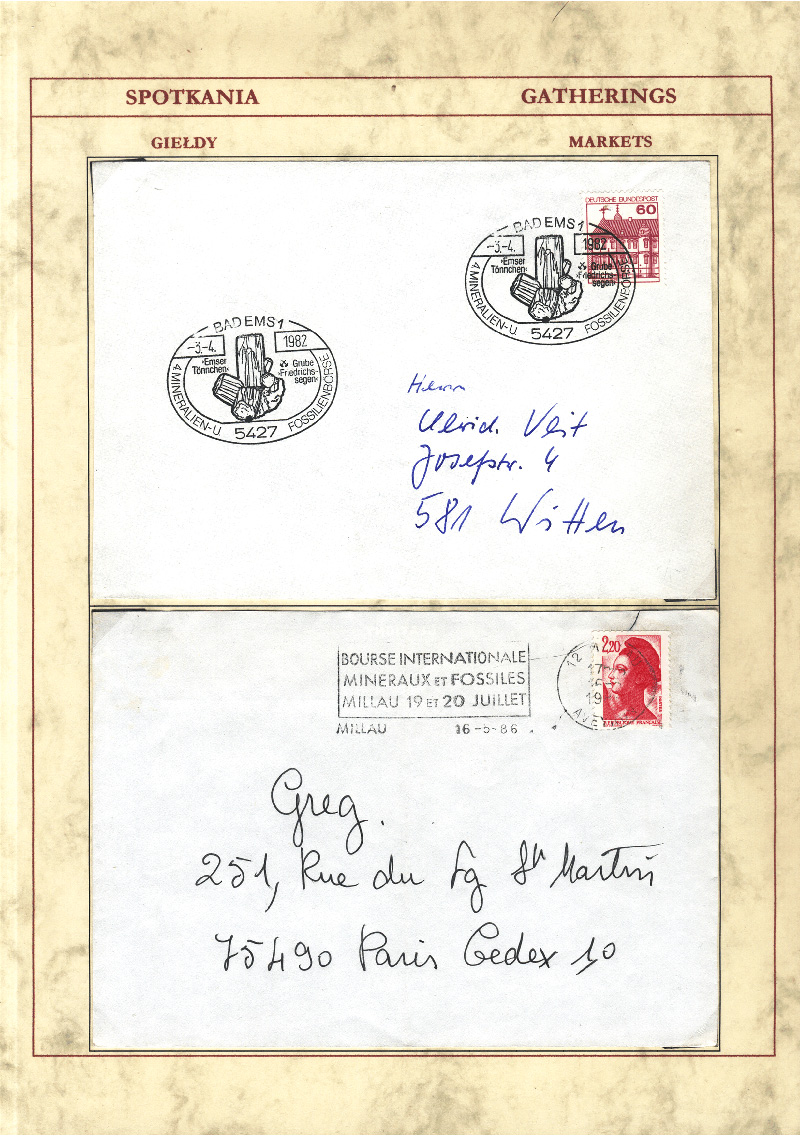 SPOTKANIA
GATHERINGS
GIEŁDY
MARKETS
DEUTSCHE BUNDESPOST
60
BAD EMS 1
–3.–4. 1982
›Emser Tönnchen‹
Grube ›Friedrichs-segen‹
4 MINERALIEN-U FOSSILIENBÖRSE
5427
BAD EMS 1
–3.–4. 1982
›Emser Tönnchen‹
Grube ›Friedrichs-segen‹
4 MINERALIEN-U FOSSILIENBÖRSE
5427
Herrn
Ulrich Veit
Josefstr. 4
581 Witten
BOURSE INTERNATIONALE
MINERAUX ET FOSSILES
MILLAU 19 ET 20 JUILLET
MILLAU 16-5-86
12 A
17
19
AVE
2,20
Greg.
251, Rue du Fg St Martin
75490 Paris Cedex 10